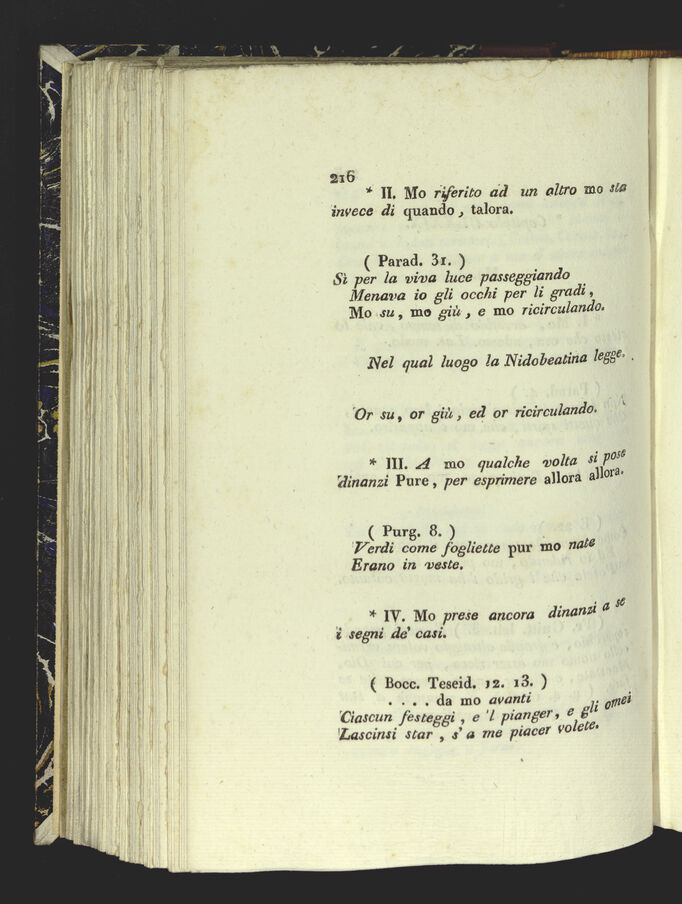 216
* II. Mo riferito ad un altro mo sta
invece di quando, talora.
( Parad. 31. )
Sì per la viva luce passeggiando
Menava io gli occhi per li gradi,
Mo su, mo giù, e mo ricirculando.
Nel qual luogo la Nidobeatina legge.
Or su, or giù, ed or ricirculando.
* III. A mo qualche volta si pose
dinanzi Pure, per esprimere allora allora.
( Purg. 8. )
Verdi come fogliette pur mo nate
Erano in veste.
* IV. Mo prese ancora dinanzi a se
i segni de' casi.
( Bocc. Teseid. 12. 13. )
. . . . da mo avanti
Ciascun festeggi, e 'l pianger, e gli omei
Lascinsi star, s' a me piacer volete.